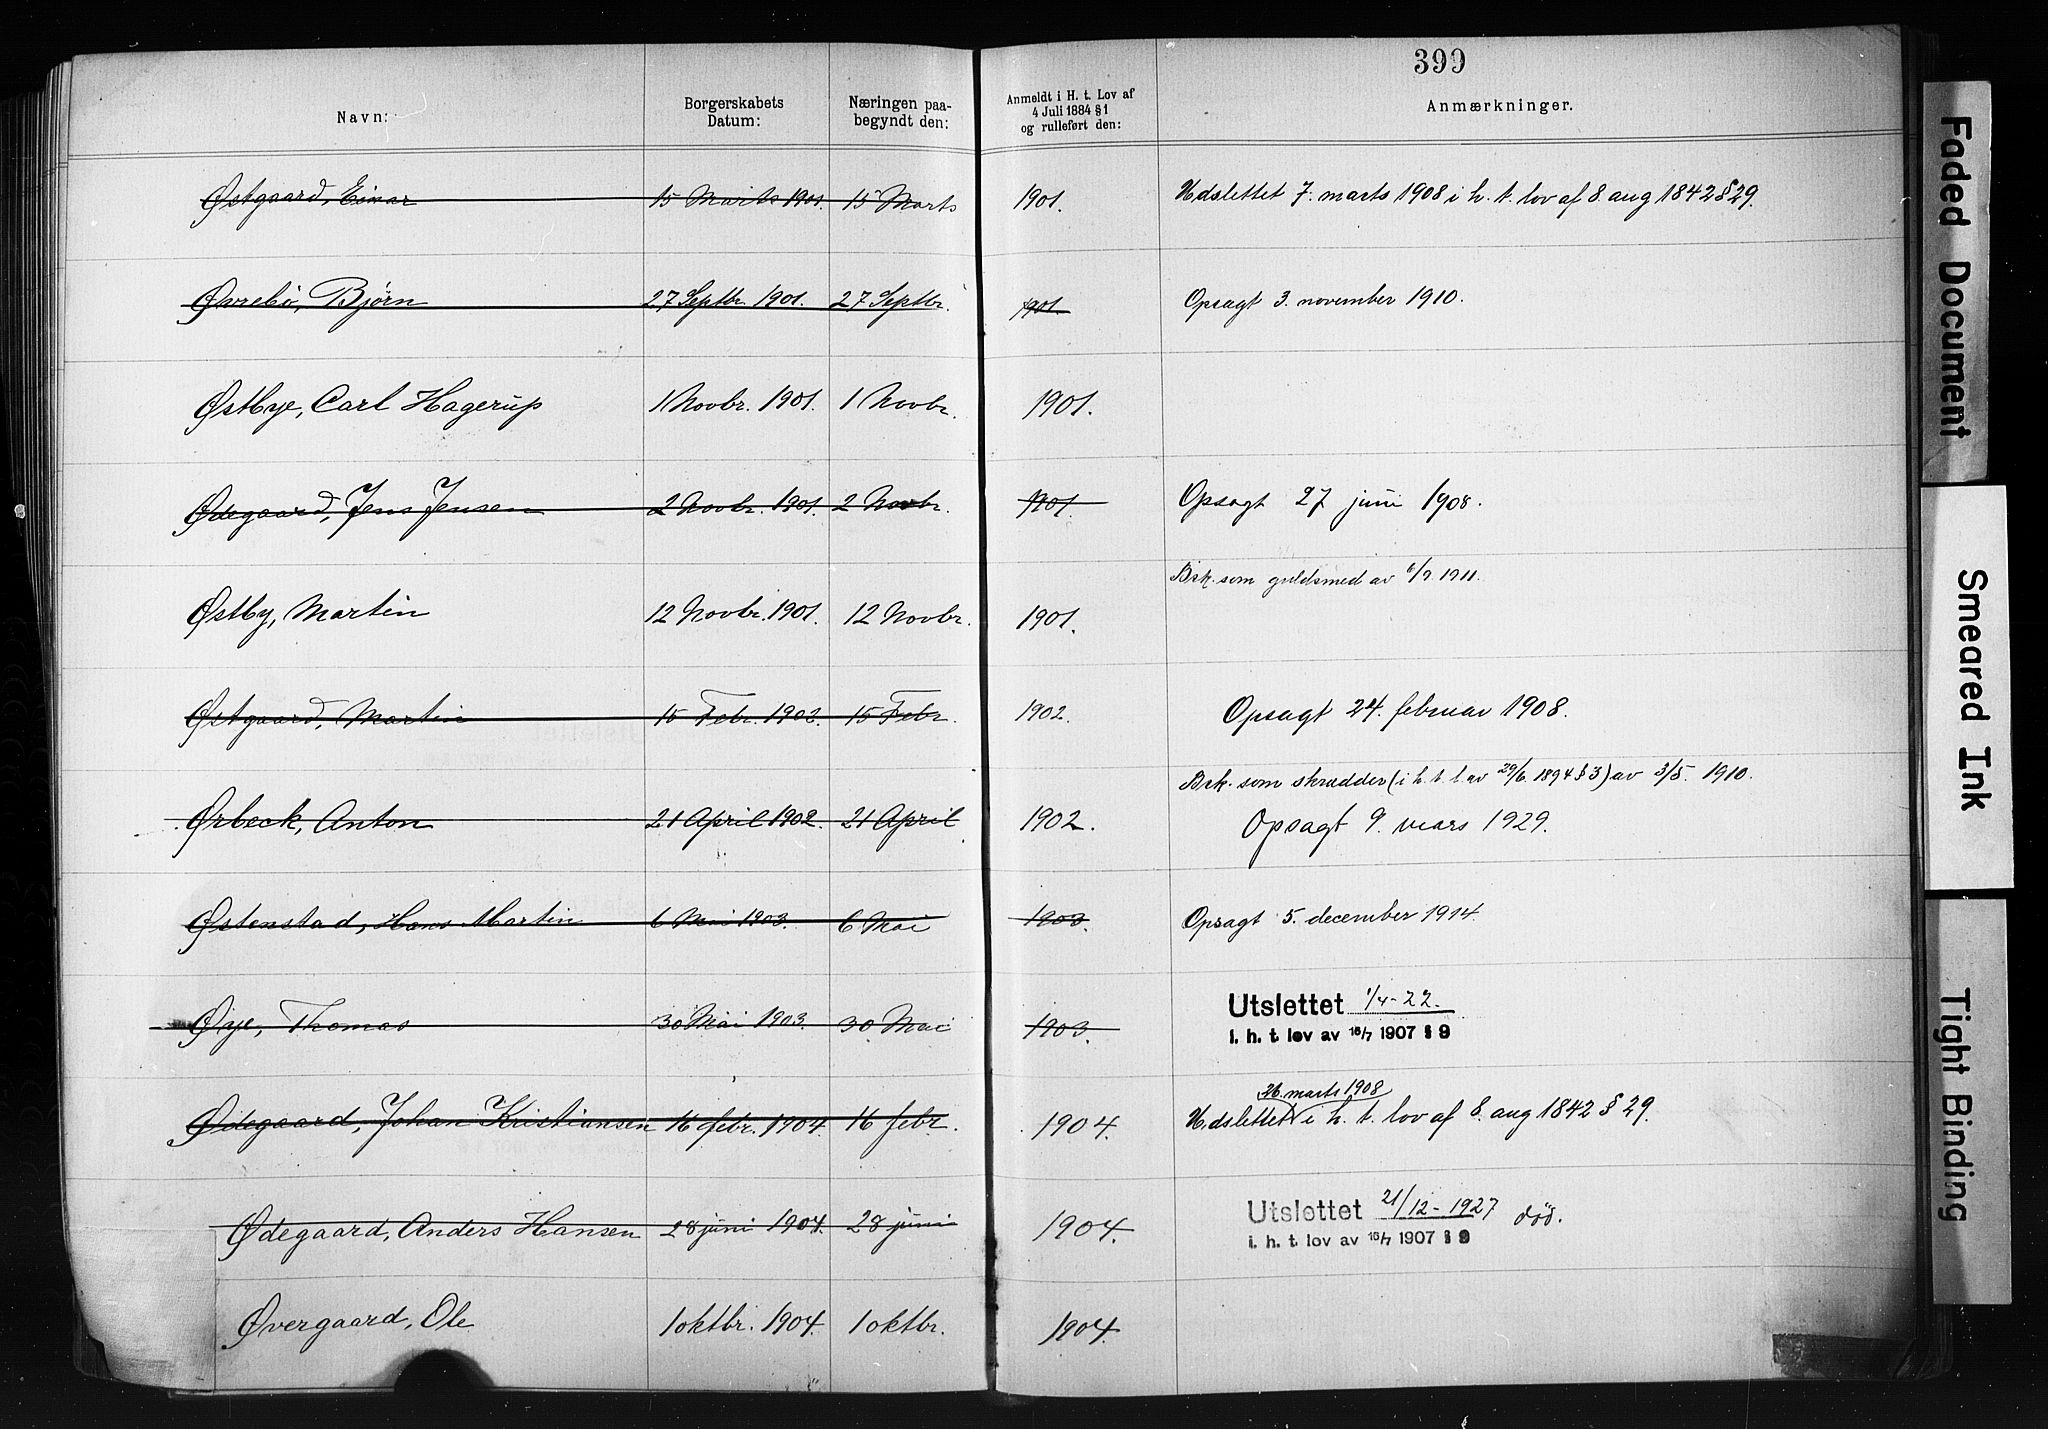 399
Navn:
Borgerskabets Datum:
Næringen paabegyndt den:
Anmeldt i H. t. Lov af 4 Juli 1884 § 1 og rulleført den:
Anmærkninger.
Østgaard, Einar 15 Marts 1901. 15 Marts 1901. Udslettet 7. marts 1908 i h. t. lov af 8. aug 1842 § 29.
Øvrebö, Bjørn 27 Septbr. 1901. 27 Septbr. 1901. Opsagt 3. november 1910.
Østbye, Carl Hagerup 1 Novbr. 1901. 1 Novbr. 1901.
Ødegaard, Jens Jensen 2 Novbr. 1901. 2 Novbr. 1901. Opsagt 27 juni 1908.
Bsk. som guldsmed av 6/9. 1911.
Østby, Martin 12 Novbr. 1901. 12 Novbr. 1901.
Østgaard, Martin 15 Febr. 1902. 15 Febr. 1902. Opsagt 24. februar 1908.
Bsk. som skrædder (i h. t. l. av 29/6 1894 § 3) av 3/5. 1910.
Ørbeck, Anton 21 April 1902. 21 April 1902. Opsagt 9. mars 1929.
Østenstad, Hans Martin 6 Mai 1903. 6 Mai 1903. Opsagt 5. december 1914.
Øye, Thomas 30 Mai 1903. 30 Mai 1903. Utslettet 1/4-22.
i. h. t. lov av 16/7 1907 § 9
26. marts 1908
Ødegaard, Johan Kristiansen 16 febr. 1904. 16 febr. 1904. Udslettet i h. t. lov af 8. aug 1842 § 29.
Ødegaard, Anders Hansen 28 juni 1904. 28 juni 1904. Utslettet 21/12-1927 död.
i. h. t. lov av 16/7 1907 § 9
Øvergaard, Ole 1 oktbr. 1904. 1 oktbr. 1904.
Faded Document
Smeared Ink
Tight Binding